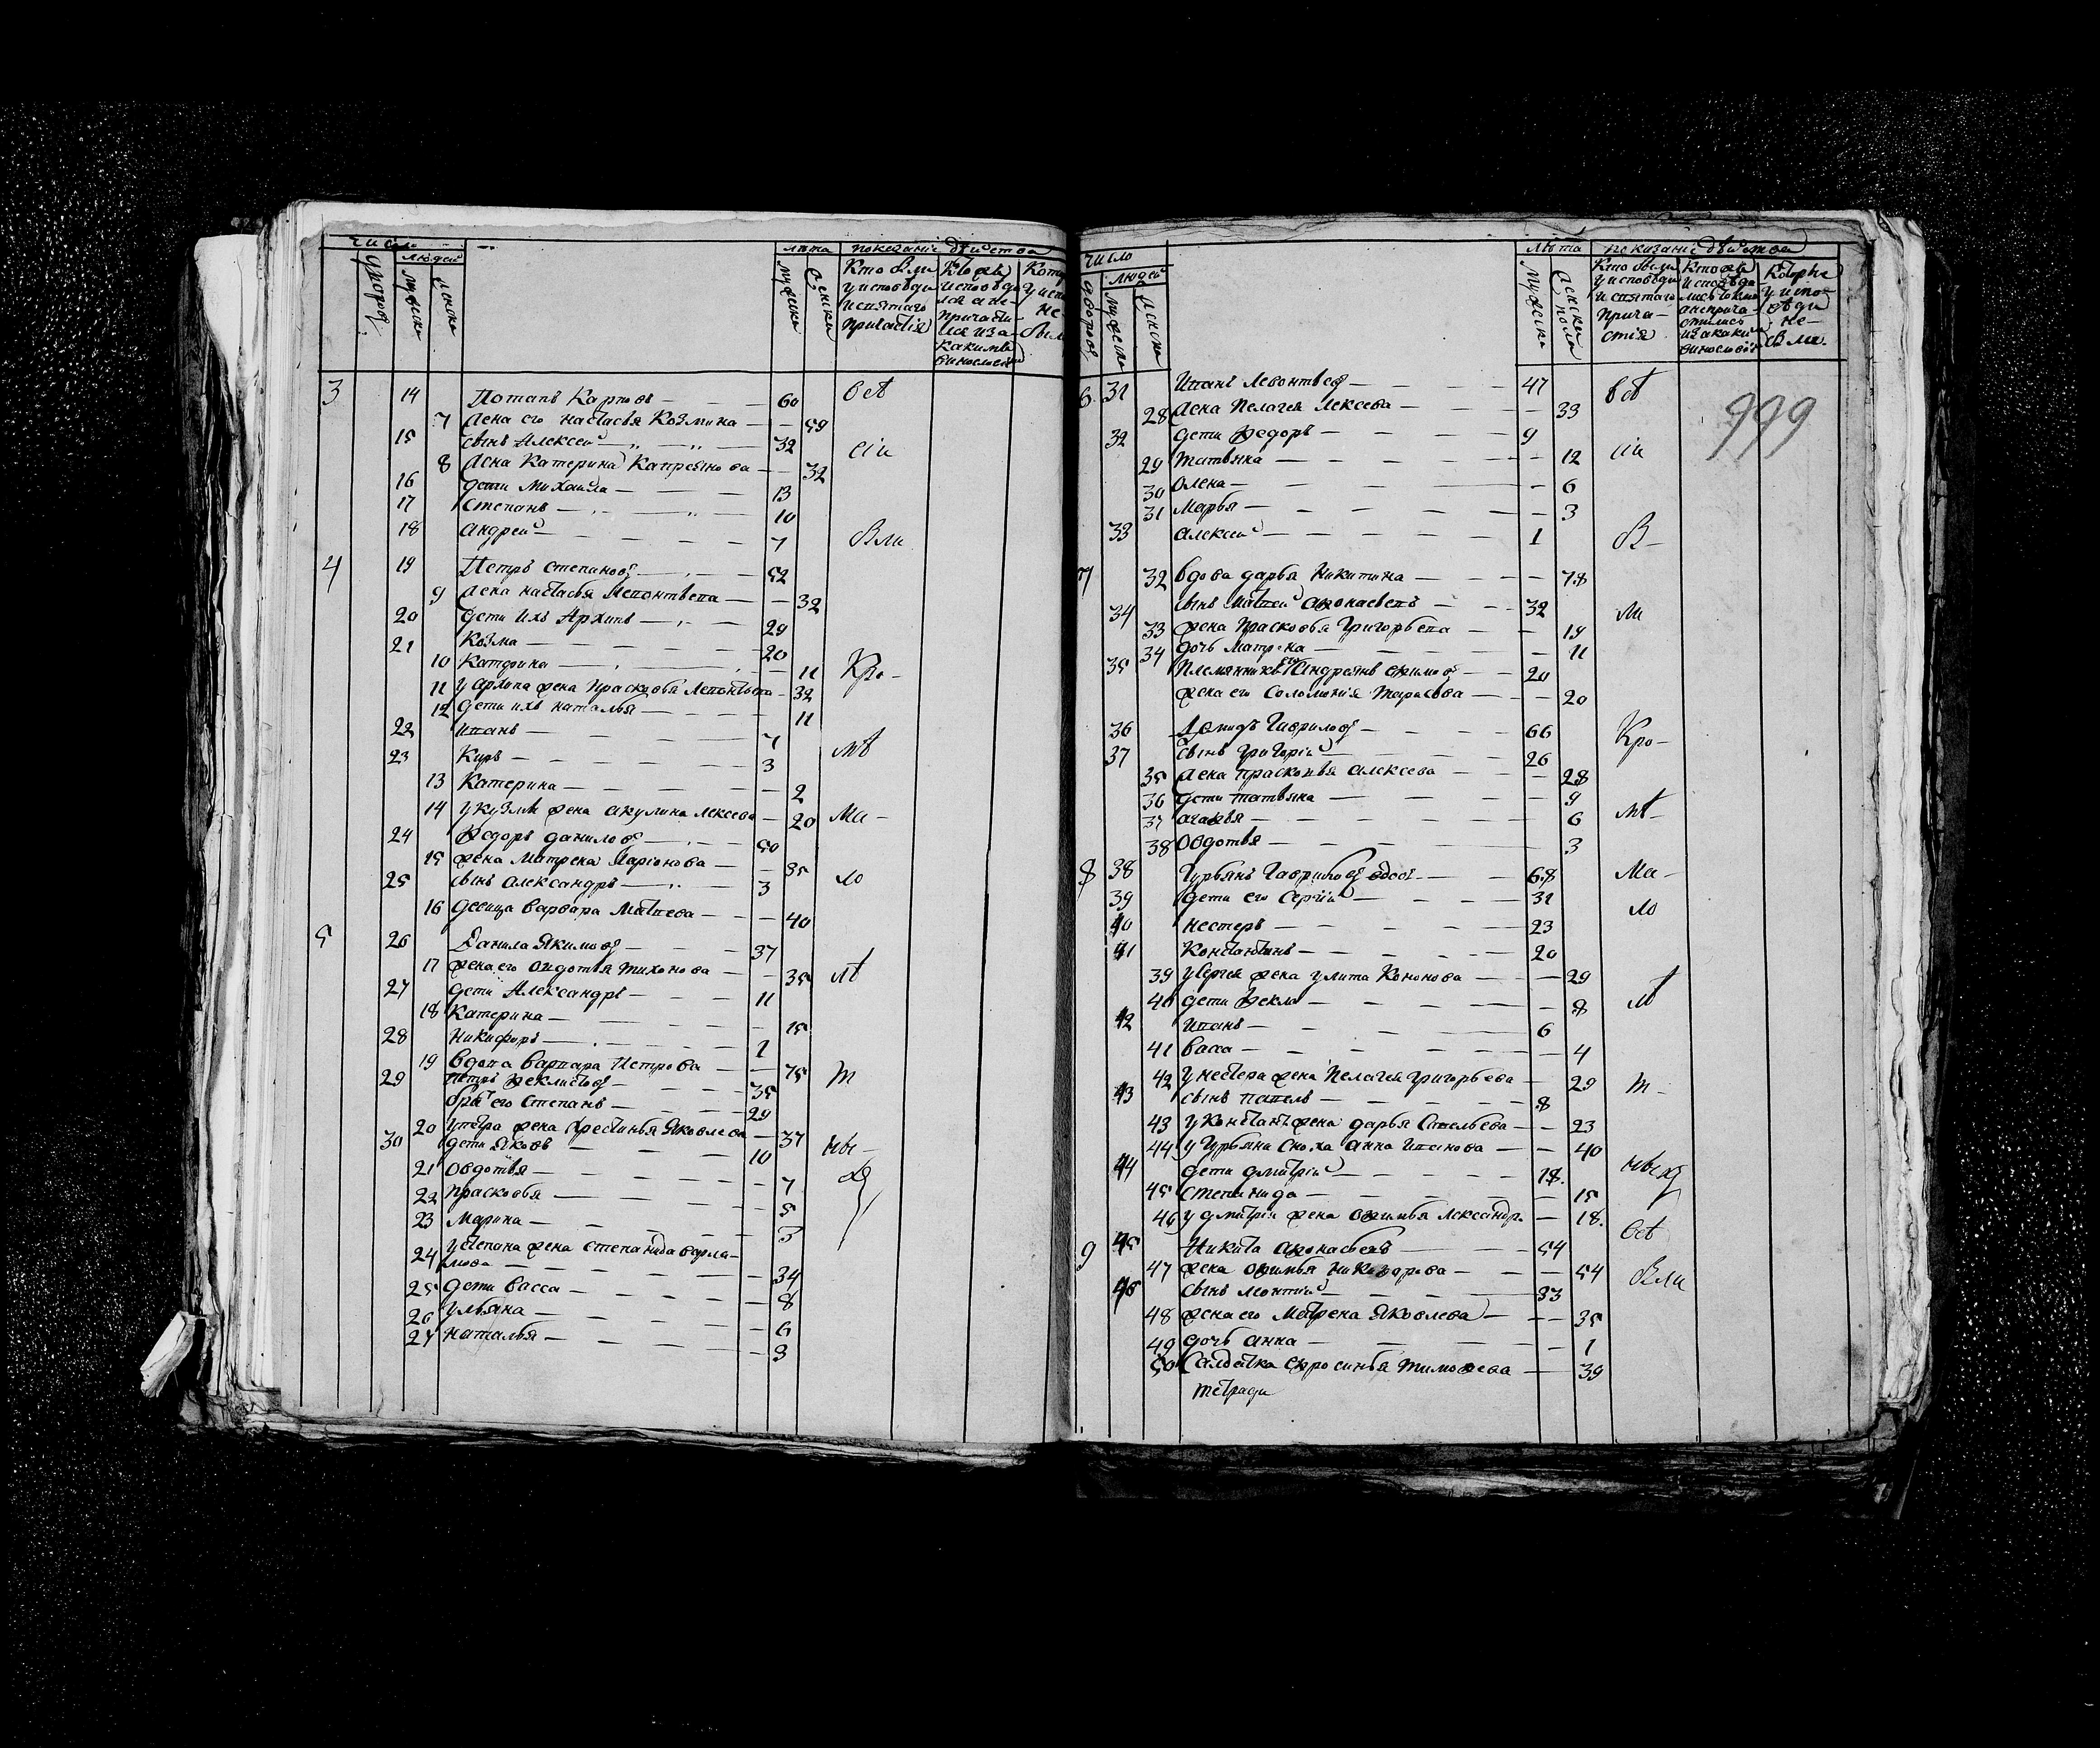 число лѣта показаніе двиства
дворов людей мужеска женска
мужеска женска
Кто были у исповеди и святаго причастія
3 14 Потапъ Карповъ 60 всѣ
7 жена его настасья Козмина 59
15 сынъ Алексей 32 сіи
8 жена Катерина Капреянова 32
16 дети Михайла 13
17 Степанъ 10
18 андрей 7 были
4 19 Петръ степановъ 52
9 жена настасья Левонтьева 32
20 дети ихъ Архипъ 29
21 Козма 20
10 Катерина 11 Кро-
11 у архипа жена прасковья Левонтьева 32
12 дети ихъ наталья 11
22 иванъ 7
23 Киръ 3 мѣ
13 Катерина 2
14 у кузмы жена акулина лексева 20 Ма-
24 Федоръ даниловъ 50
15 жена Матрена Ларіонова 35
25 сынъ александръ 3 ло
16 девица варвара Матвева 40
5 26 Данила Якимовъ 37
17 жена его овдотья тихонова 35 лѣ
27 дети Александръ 11
18 Катерина 15
28 никифоръ 1
19 вдова варвара Петрова 75 т
29 петръ феклистовъ 35
братъ его Степанъ 29
20 у петра жена хрестинья Яковлева 37
30 дети Яковъ 10 ны
21 овдотья 7
22 прасковья 5
23 Марина 3
24 у степана жена степанида варла-
мова 34
25 дети васса 8
26 ульяна 6
27 наталья 3
число лѣта показаніе двиства
дворовъ людей мужеска женска
мужеска женска пола
Кто были у исповеди и святаго прича-
стія
Которые у испо-
веди не-
были.
6 31 Иванъ Левонтьевъ 47 всѣ
999
28 жена Пелагея лексева 33
32 дети федоръ 9
29 татьяна 12 сіи
30 олена 6
31 Марья 3
33 алексей 1 б-
7 32 вдова дарья Никитина 78
34 сынъ матвей афонасьевъ 32 ли
33 жена прасковья григорьева 19
34 дочь матрена 11
35 племянникъ его андреянъ ефимовъ 20
жена его соломония тарасова 20
36 Демидъ гавриловъ 66 Кро-
37 сынъ григорій 26
35 жена прасковья алексева 28
36 дети татьяна 9
37 агафья 6 мѣ-
38 овдотья 3
8 38 Гурьянъ гавриловъ вдов. 68 Ма-
39 дети его сергій 31
40 нестеръ 23 ло
41 константинъ 20
39 у сергея жена улита Кононова 29
40 дети фекла 8 лѣ
42 иванъ 6
41 васса 4
42 у нестера жена пелагея григорьева 29 т-
43 сынъ павелъ 8
43 у констант. жена дарья савельева 23
44 у гурьяна сноха анна иванова 40
44 дети дмитрій 18. ны
45 степанида 15
46 у дмитрія жена офимья лександр. 18. всѣ
9 45 Никита афонасьевъ 54
47 жена офимья никонорова 54 были
46 сынъ леонтій 33
48 жена его матрена Яковлева 35
49 дочь анна 1
50 салдатка ефросинья тимофеева 39
тетради